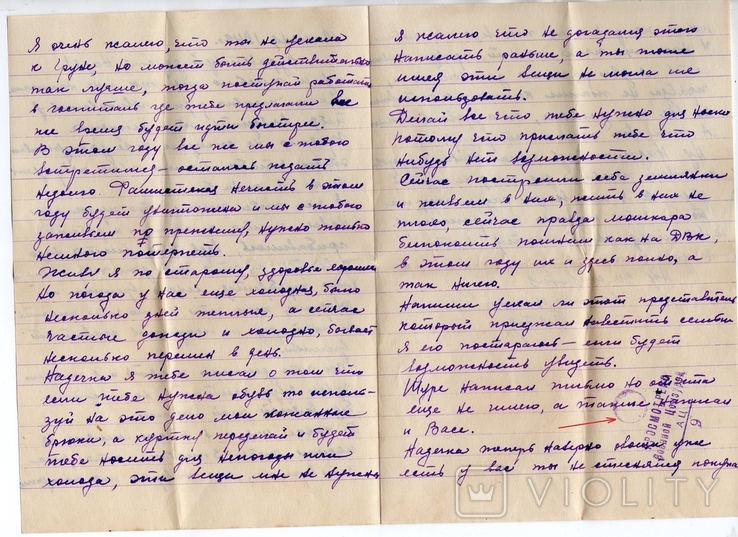 Я очень жалею, что ты не уехала
к Груне, но может быть действительно
так лучше, тогда поступай работать
в госпиталь где тебе предлагали все
же время будет идти быстрее.
В этом году все же мы с тобою
встретимся - осталось подать
недолго. Фашистская нечисть в этом
году будет уничтожена и мы с тобою
заживем по прежнему, нужно только
немного потерпеть.
Живу я по старому, здоровье хорошее
но погода у нас еще холодная, было
несколько дней теплые, а сейчас
частые дожди и холодно, бывает
несколько перемен в день.
Надечка я тебе писал о том что
если тебе нужна обувь то исполь-
зуй на это дело мои кожанные
брюки, а куртку переделай и будет
тебе носить для непогоды или
холода, эти вещи мне не нужны
Я жалею что не догадался этого
написать раньше, а ты тоже
имея эти вещи не могла же
использовать.
Делай все что тебе нужно для носки
потому что прислать тебе что
нибудь нет возможности.
Сейчас построили себе землянки
и живем в них, жить в них не
плохо, сейчас правда мошкара
беспокоить помним как на ДВК,
в этом году их и здесь полно, а
так ничего.
Напиши уехал ли этот представитель
который приезжал навестить семьи
Я его постараюсь - если будет
возможность увидеть.
Шуре написал письмо но ответа
еще не имею, а также написал
и Васе.
Надечка теперь наверно овощи уже
есть у вас ты не стесняйся покупа
ПРОСМОТРЕНО
Военной Цензурой
VIOLITY